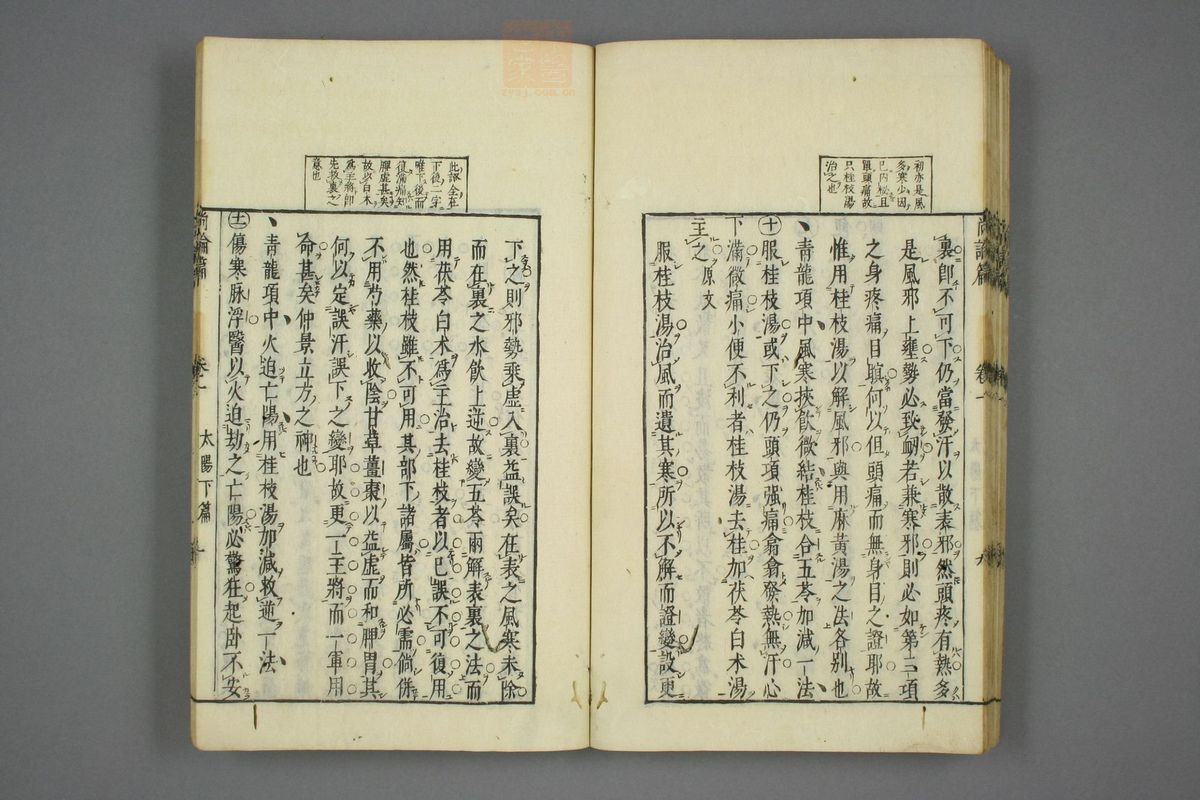 初亦是風
多寒少因
已内松且
單頭痛故
只桂枝湯
治之也
裏卽不可下仍當發汗以散表邪然頭疼有熱多
是風邪上壅勢必致衂若兼寒邪則必如第三項
之身疼痛目瞋何以但頭痛而無身目之證耶故
惟用桂枝湯以解風邪與用麻黃湯之法各別也
青龍項中風寒挾飮微結桂枝合五苓加減一法
㊉服桂枝湯或下之仍頭項强痛翕翕發熱無汗心
下滿微痛小便不利者桂枝湯去桂加茯苓白术湯
主之原文
服桂枝湯治風而遺其寒所以不解而證變設更
尚論篇 卷一 太陽下篇
此證全在
下後二字
唯下後而
復滿痛知
脾虛甚矣
故以白术
爲主將卽
先救裏之
意也
下之則邪勢乘虛入裏益誤矣在表之風寒未除
而在裏之水飮上逆故變五苓兩解表裏之法而
用茯苓白术爲主治去桂枝者以已誤不可復用
也然桂枝雖不可用其部下諸屬皆所必需倘併
不用芍藥以收陰甘草薑棗以益虛而和脾胃其
何以定誤汗誤下之變耶故更一主將而一軍用
命甚矣仲景立方之神也
青龍項中火迫亡陽用桂枝湯加減救逆一法
十一傷寒脉浮醫以火迫劫之亡陽必驚狂起卧不安
尚論篇 卷一 太陽下篇